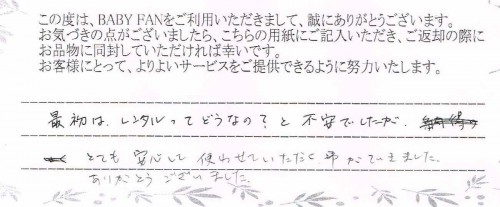 この度は、BABY FANをご利用いただきまして、誠にありがとうございます。
お気づきの点がございましたら、こちらの用紙にご記入いただき、ご返却の際に
お品物に同封していただければ幸いです。
お客様にとって、よりよいサービスをご提供できるように努力いたします。
最初は、レンタルってどうなの?と不安でしたが、
とても安心して使わせていただく事ができました。
ありがとうございました。